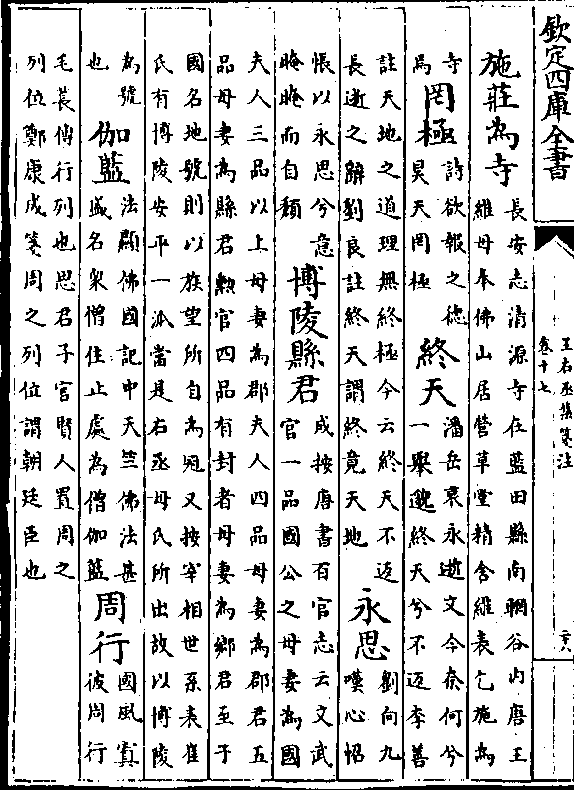 欽定四庫全書
王右丞集箋注
卷十七
二十八
施莊為寺
長安志清源寺在藍田縣南輞谷内唐王
維母奉佛山居營草堂精舍維表乞施為
寺
焉
罔極
詩欲報之徳
昊天罔極
終天
潘岳哀永逝文今奈何兮
一舉邈終天兮不返李善
註天地之道理無終極今云終天不返
長逝之辭劉良註終天謂終竟天地
永思
劉向九
嘆心怊
悵以永思兮意
晻晻而自頽
博陵縣君
成按唐書百官志云文武
官一品國公之母妻為國
夫人三品以上母妻為郡夫人四品母妻為郡君五
品母妻為縣君勲官四品有封者母妻為鄉君至于
國名地號則以族望所自為冠又按宰相世系表崔
氏有博陵安平一派當是右丞母氏所出故以博陵
為號
也
伽藍
法顯佛國記中天竺佛法甚
盛名衆僧住止處為僧伽藍
周行
國風寘
彼周行
毛萇傳行列也思君子官賢人置周之
列位鄭康成箋周之列位謂朝廷臣也